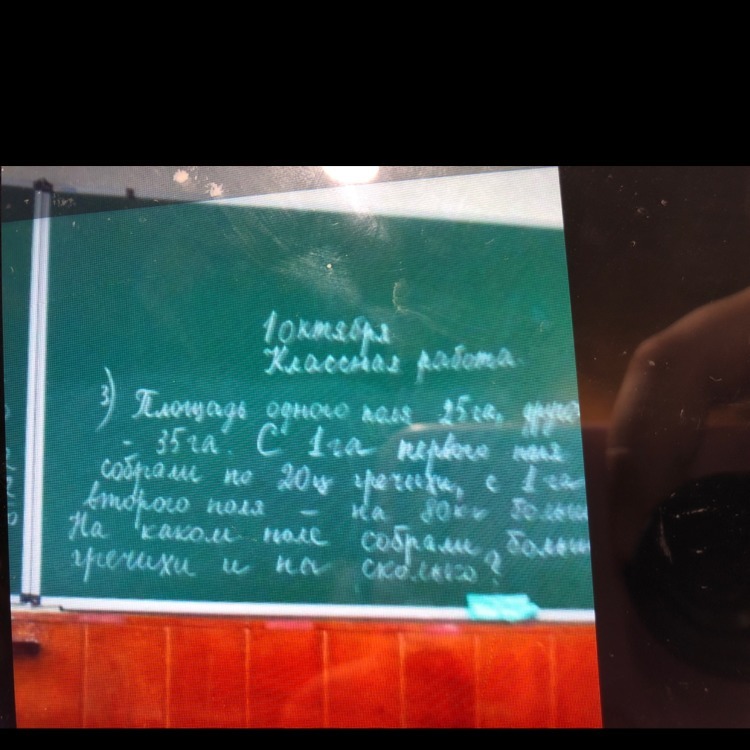 1 октября
Классная работа.
3) Площадь одного поля 25га, друго
- 35га. С 1га первого поля
собрали по 20ц гречихи, с 1га
второго поля - на 80кг больш
На каком поле собрали больш
гречихи и на сколько?